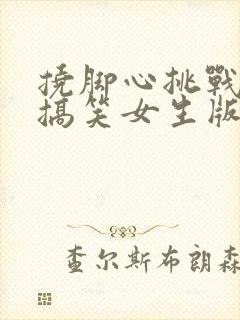 撓脚心挑戰
搞笑女生版
查尔斯布朗森